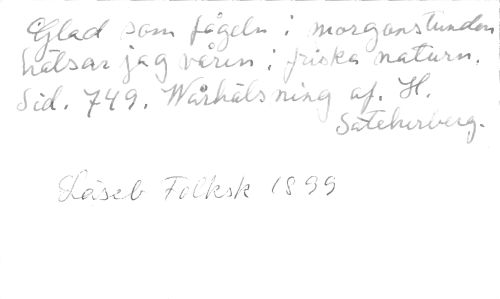 Glad som fågeln i morgonstunden
hälsar jag våren i friska naturn.
Sid. 749. Wårhälsning af. H.
Säteherberg.
Läseb Folksk 1899